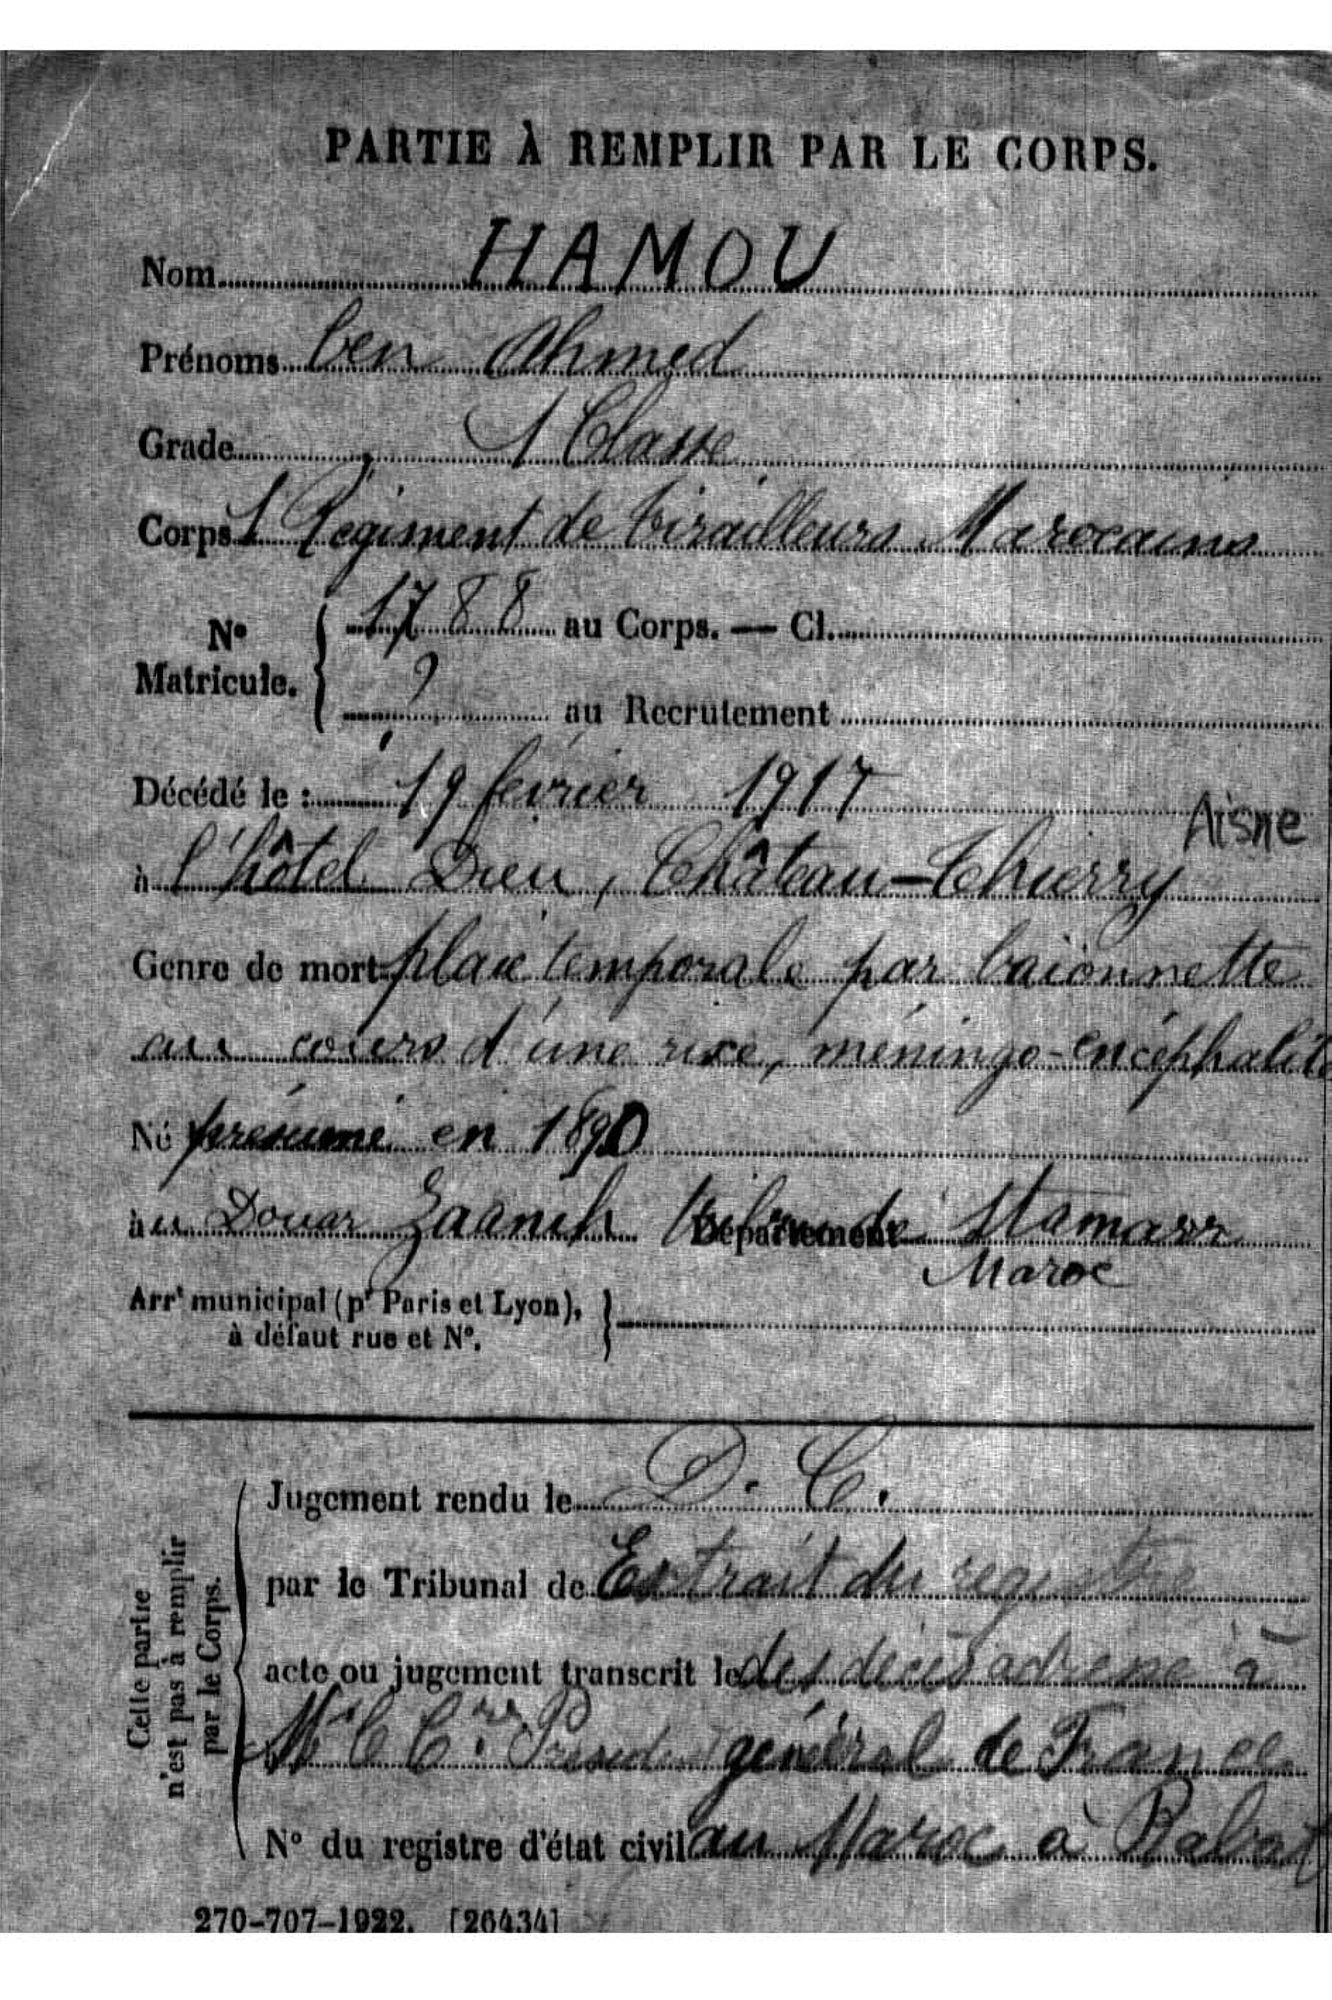 PARTIE À REMPLIR PAR LE CORPS.
Nom HAMOU
Prénoms ben Ahmed
Grade 1 Classe
Corps 1 Régiment de tirailleurs Marocains
No Matricule. { 1788 au Corps. — Cl.
? au Recrutement
Décédé le : 19 février 1917
Aisne
à l'hôtel Dieu, Château-Thierry
Genre de mort plaie temporale par baïonnette
au cours d'une rixe, méningo-encéphalite
Né présumé en 1890
à u Douar Zaanih Département tribu de Stamarr
Maroc
Arrt municipal (pr Paris et Lyon),
à défaut rue et No.
Cette partie
n'est pas à remplir
par le Corps.
Jugement rendu le D. C.
par le Tribunal de Extrait du registre
acte ou jugement transcrit le des décès adressé à
Mr Général de France
No du registre d'état civil au Maroc à Rabat
270-707-1922. [26434]